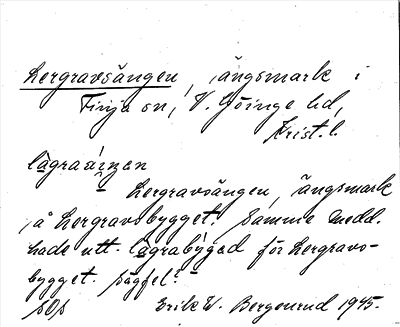 Lergravsängen, ängsmark i
Finja sn, V. Göinge hd,
Krist. l.
lägraäingen
Lergravsängen, ängsmark
å Lergravsbygget. Samme medd.
hade utt. lägrabýgad för Lergravs-
bygget. Sägfel?
Erik W. Bergenrud 1945.